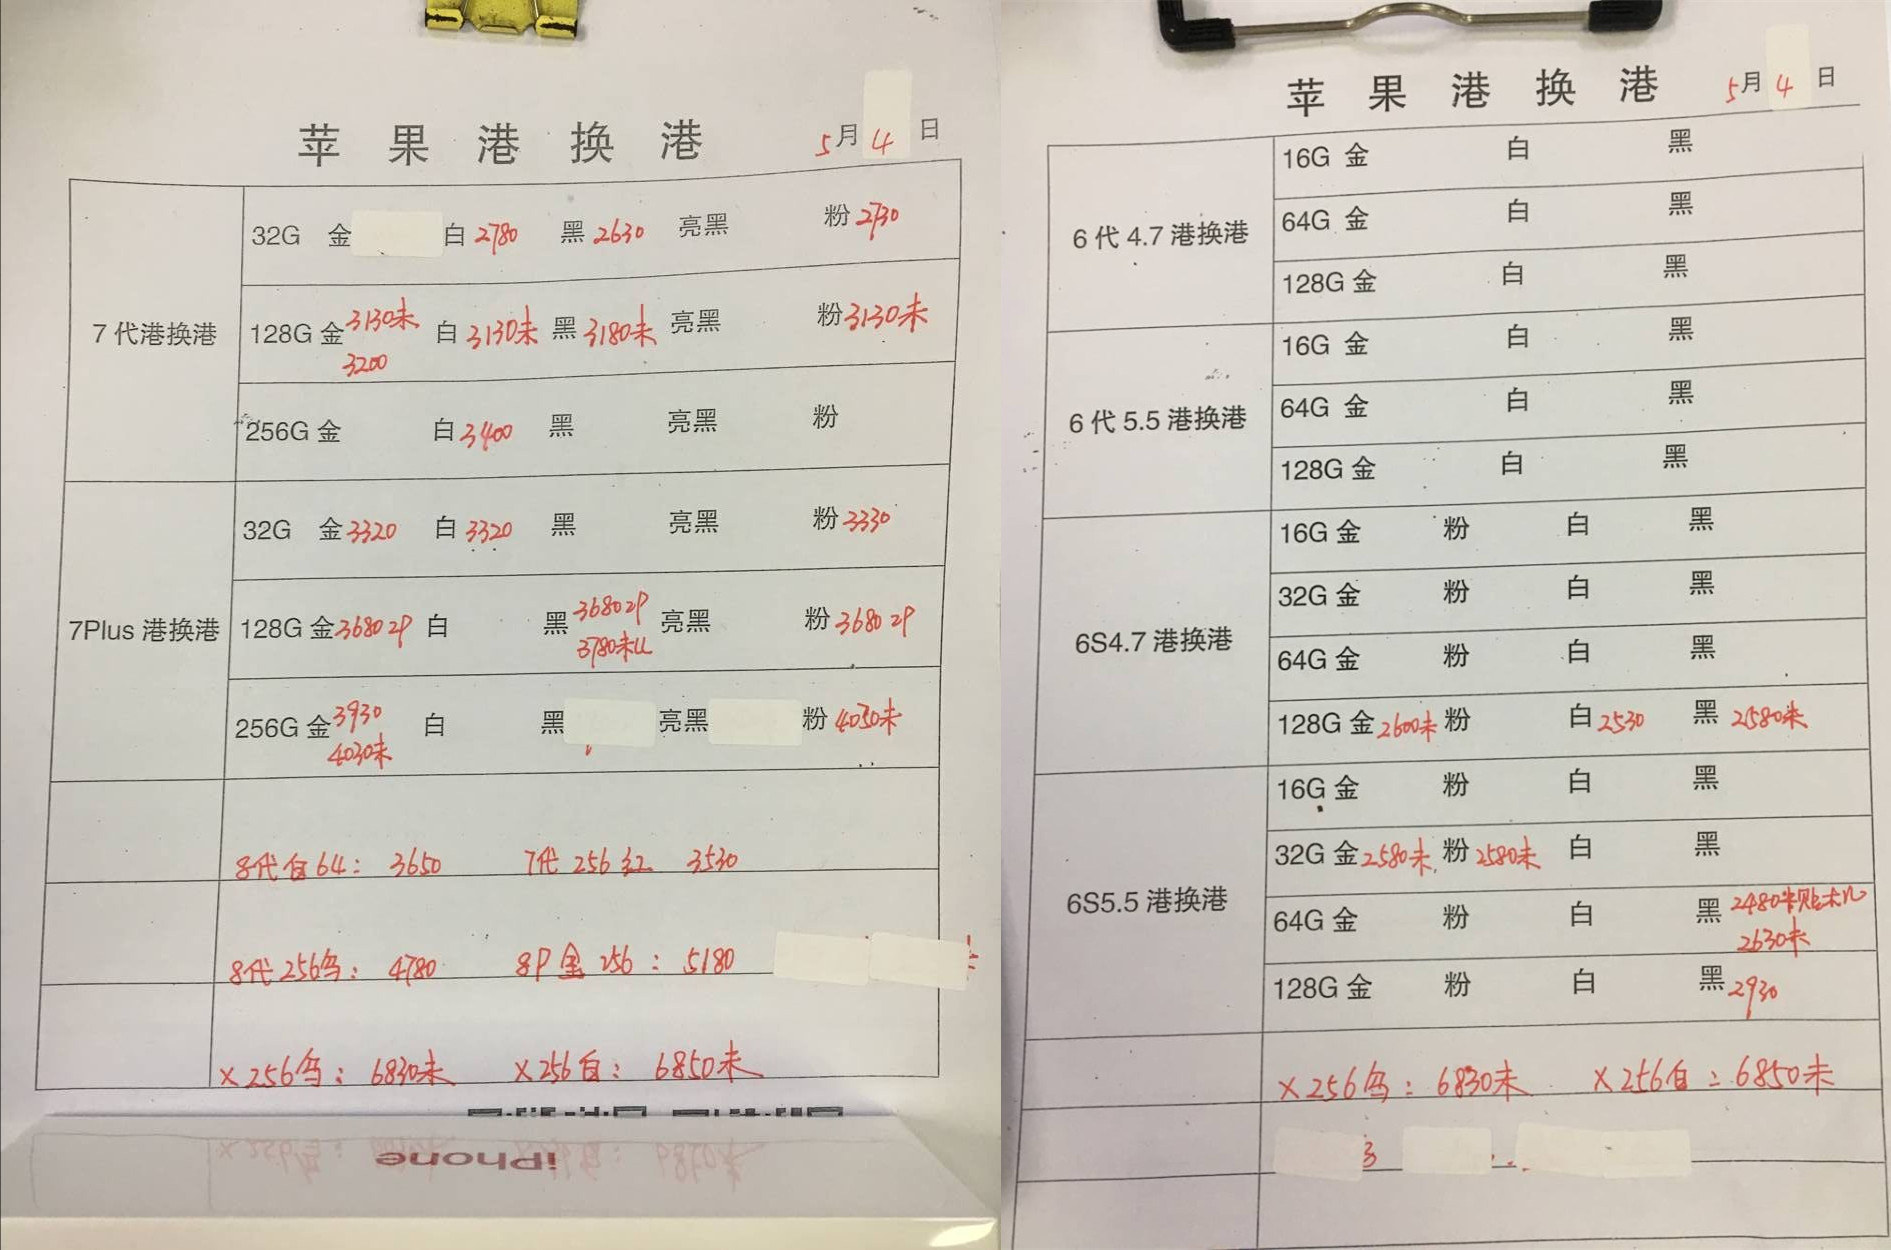 苹果港换港 5月4日
7代港换港
32G 金 白2780 黑2630 亮黑 粉2730
128G 金3130未 白3130未 黑3180未 亮黑 粉3130未
3200
256G 金 白3400 黑 亮黑 粉
7Plus港换港
32G 金3320 白3320 黑 亮黑 粉3330
128G 金3680 2P 白 黑3680 2P 亮黑 粉3680 2P
3780未
256G 金3930 白 黑 亮黑 粉4030未
4030未
8代白64: 3650 7代256红 3530
8代256乌: 4780 8P金256: 5180
X256乌: 6830未 X256白: 6850未
iPhone
苹果港换港 5月4日
6代4.7港换港
16G 金 白 黑
64G 金 白 黑
128G 金 白 黑
6代5.5港换港
16G 金 白 黑
64G 金 白 黑
128G 金 白 黑
6S4.7港换港
16G 金 粉 白 黑
32G 金 粉 白 黑
64G 金 粉 白 黑
128G 金2600未 粉 白2530 黑2580未
6S5.5港换港
16G 金 粉 白 黑
32G 金2580未 粉2580未 白 黑
64G 金 粉 白 黑2480
2630未
128G 金 粉 白 黑2930
X256乌: 6830未 X256白: 6850未
3